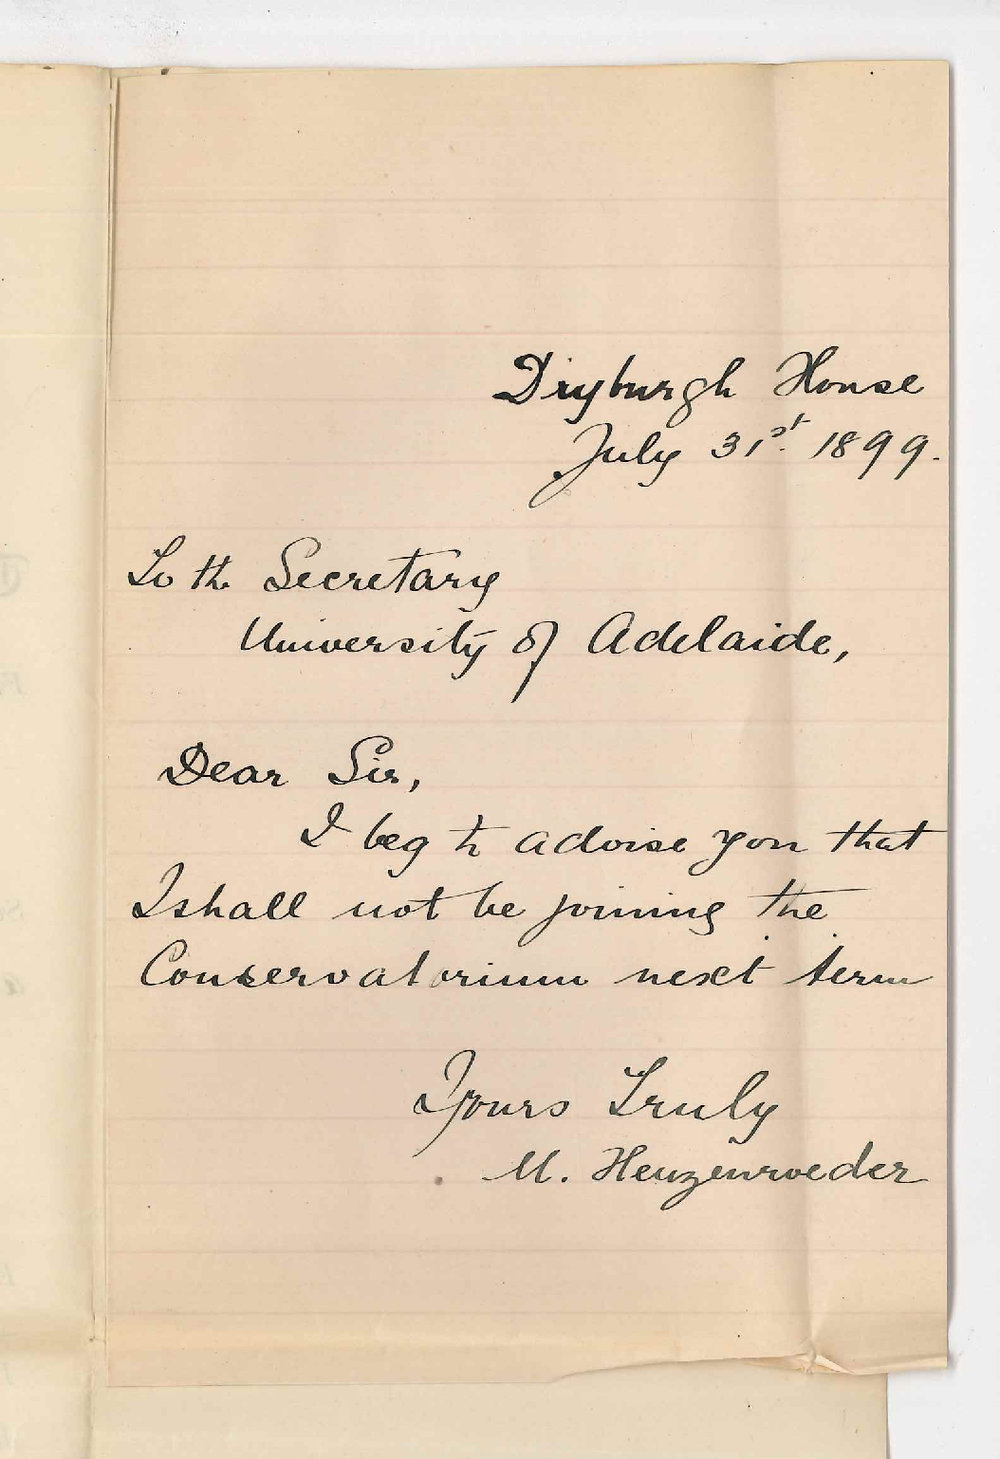 Dryburgh House
July 31st. 1899.
To the Secretary
University of Adelaide,
Dear Sir,
I beg to advise you that
I shall not be joining the
Conservatorium next term
Yours Truly
M. Heuzenroeder